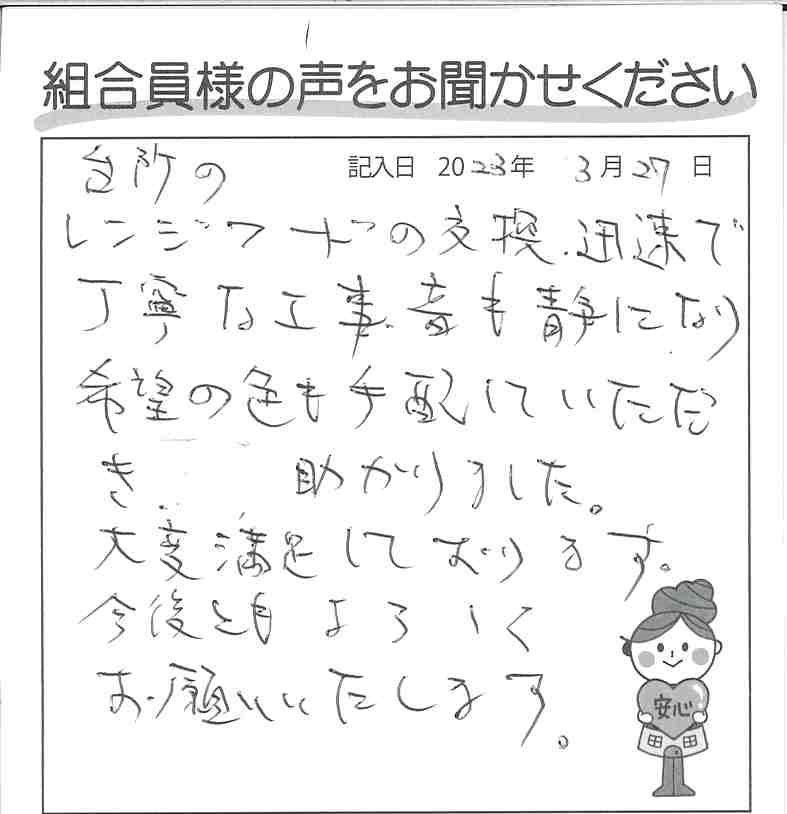 組合員様の声をお聞かせください
記入日 2023年 3月27日
台所の
レンジフードの交換、迅速で
丁寧な工事、音も静になり
希望の色も手配していただ
き 助かりました。
大変満足しております。
今後ともよろしく
お願いいたします。
安心